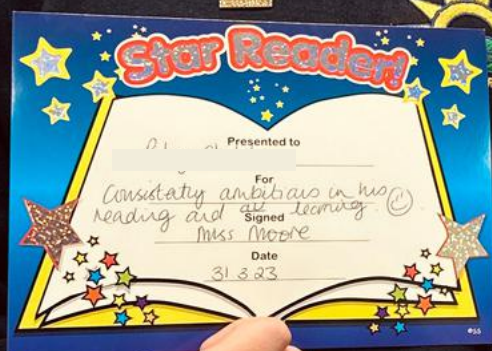 Star Reader!
Presented to
For
Consistatly ambitious in his
reading and all learning.
Signed
Miss Moore
Date
31 3 23
©SS